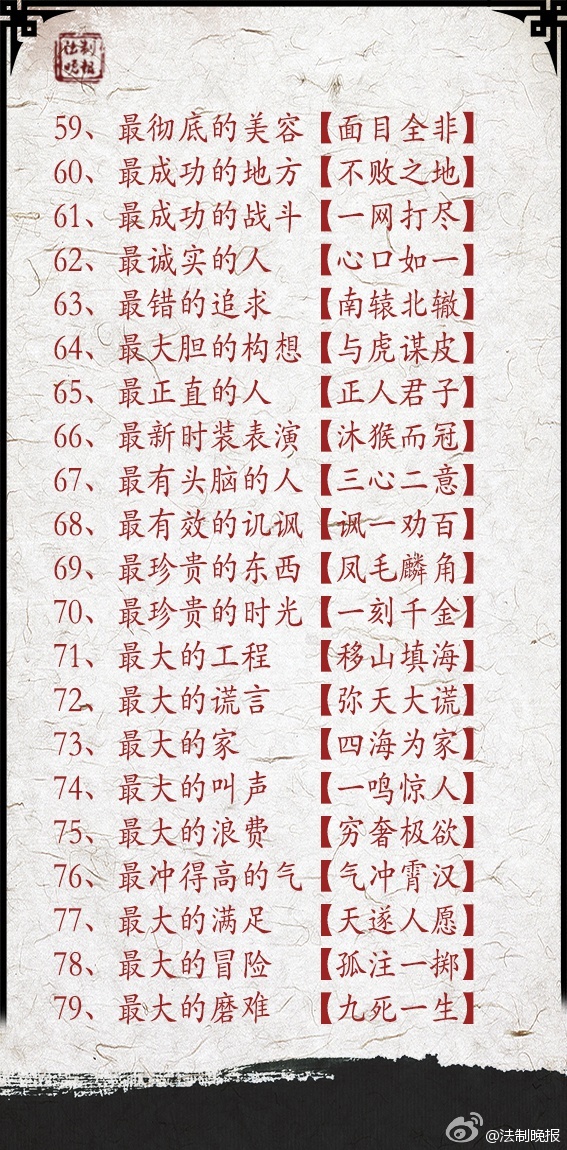 法制
晚报
59、最彻底的美容【面目全非】
60、最成功的地方【不败之地】
61、最成功的战斗【一网打尽】
62、最诚实的人【心口如一】
63、最错的追求【南辕北辙】
64、最大胆的构想【与虎谋皮】
65、最正直的人【正人君子】
66、最新时装表演【沐猴而冠】
67、最有头脑的人【三心二意】
68、最有效的讥讽【讽一劝百】
69、最珍贵的东西【凤毛麟角】
70、最珍贵的时光【一刻千金】
71、最大的工程【移山填海】
72、最大的谎言【弥天大谎】
73、最大的家【四海为家】
74、最大的叫声【一鸣惊人】
75、最大的浪费【穷奢极欲】
76、最冲得高的气【气冲霄汉】
77、最大的满足【天遂人愿】
78、最大的冒险【孤注一掷】
79、最大的磨难【九死一生】
@法制晚报